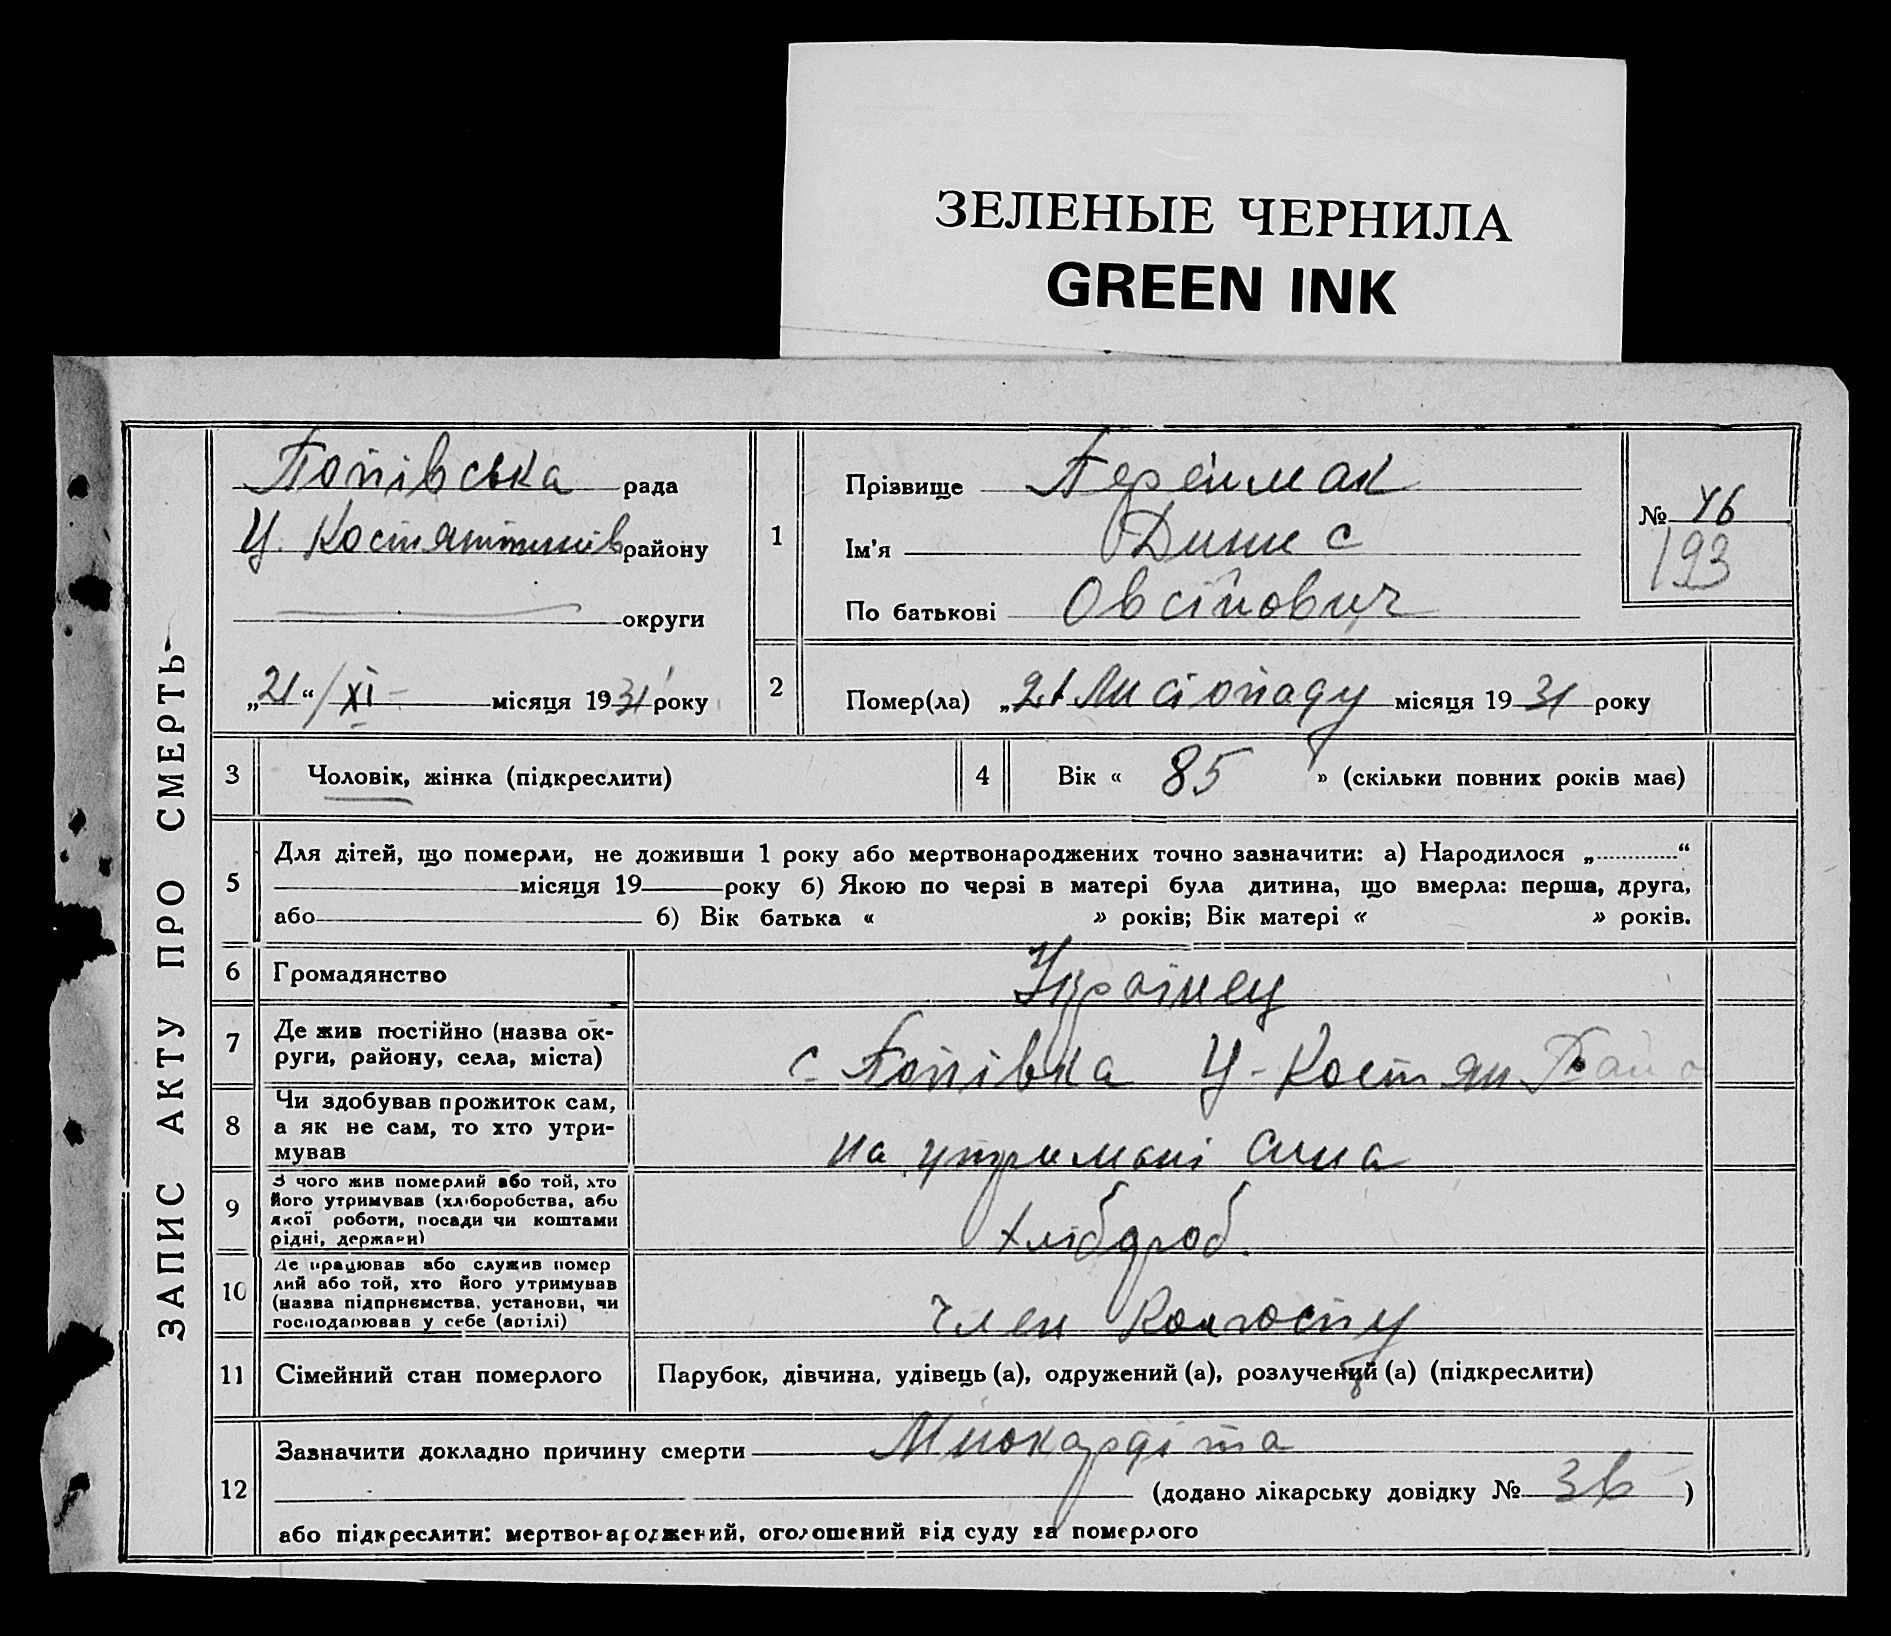 ЗЕЛЕНЫЕ ЧЕРНИЛА
GREEN INK
ЗАПИС АКТУ ПРО СМЕРТЬ
Попівська рада
району
округи
„21“/XI місяця 1931 року
1
Прізвище
Ім'я Динис
По батькові Овсійович
№ 46
193
2
Помер(ла) „21 Листопаду місяця 1931 року
3 Чоловік, жінка (підкреслити)
4 Вік « 85 » (скільки повних років має)
5
Для дітей, що померли, не доживши 1 року або мертвонароджених точно зазначити: а) Народилося „............“
місяця 19 року б) Якою по черзі в матері була дитина, що вмерла: перша, друга,
або б) Вік батька « » років; Вік матері « » років.
6 Громадянство Українец
7
Де жив постійно (назва ок-
руги, району, села, міста)
с. Попівка У-Костян Райо
8
Чи здобував прожиток сам,
а як не сам, то хто утри-
мував
на утримані сина
9
З чого жив померлий або той, хто
його утримував (хліборобства, або
якої роботи, посади чи коштами
рідні, держави)
хлібороб.
10
Де працював або служив помер
лий або той, хто його утримував
(назва підприємства, установи, чи
господарював у себе (артілі)
член колгоспу
11 Сімейний стан померлого Парубок, дівчина, удівець (а), одружений (а), розлучений (а) (підкреслити)
12
Зазначити докладно причину смерти Миокардіта
(додано лікарську довідку № 36 )
або підкреслити: мертвонароджений, оголошений від суду за померлого